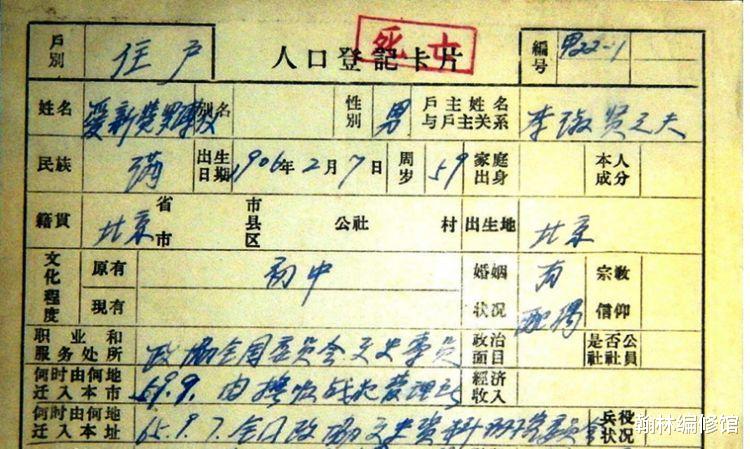 戶別 住户 人口登記卡片 死亡 編号 男22-1
姓名 愛新 别名 性別 男 戶主姓名与戶主关系 李淑贤之夫
民族 满 出生日期 1906年2月7日 周岁 59 家庭出身 本人成分
籍貫 北京 省市 市县区 公社 村 出生地 北京
文化程度 原有 初中 婚姻状况 有配偶 宗教信仰
现有
职业和服务处所 政协全国委员会文史专员 政治面目 是否公社社员
何时由何地迁入本市 59.9.由抚顺战犯管理所 經济收入
何时由何地迁入本址 65.9.7.全国政协文史资料研究委员会 兵役状况
瀚林编修馆